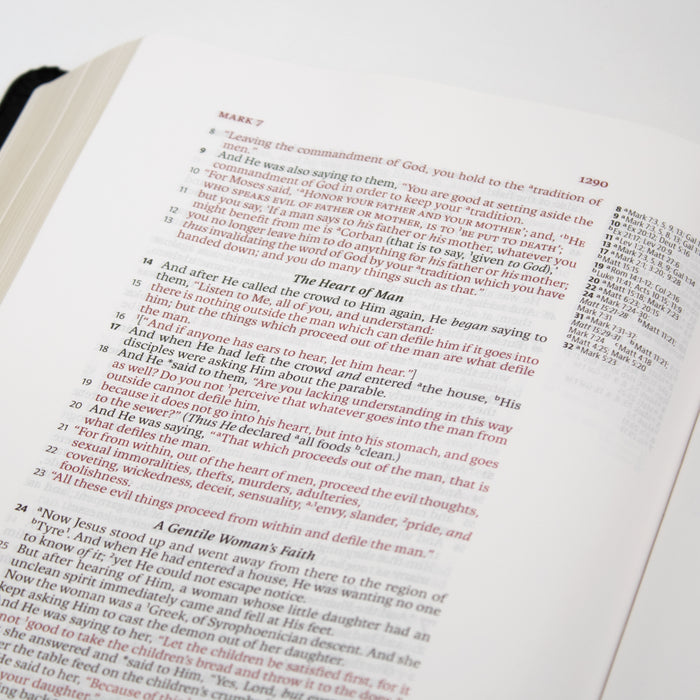 MARK 7
1290
8 "Leaving the commandment of God, you hold to the ᵃtradition of
men."
9 And He was also saying to them, "You are good at setting aside the
commandment of God in order to keep your ᵃtradition.
10 "For Moses said, 'ᵃHONOR YOUR FATHER AND YOUR MOTHER'; and, 'ᵇHE
WHO SPEAKS EVIL OF FATHER OR MOTHER, IS TO ¹BE PUT TO DEATH';
11 but you say, 'If a man says to his father or his mother, whatever you
might benefit from me is ᵃCorban (that is to say, ¹given to God),'
12 you no longer leave him to do anything for his father or his mother;
13 thus invalidating the word of God by your ᵃtradition which you have
handed down; and you do many things such as that."
The Heart of Man
14 And after He called the crowd to Him again, He began saying to
them, "Listen to Me, all of you, and understand:
15 there is nothing outside the man which can defile him if it goes into
him; but the things which proceed out of the man are what defile
the man.
16 ["And if anyone has ears to hear, let him hear."]
17 And when He had left the crowd and entered ᵃthe house, ᵇHis
disciples were asking Him about the parable.
18 And He *said to them, "Are you lacking understanding in this way
as well? Do you not ¹perceive that whatever goes into the man from
outside cannot defile him,
19 because it does not go into his heart, but into his stomach, and goes
to the sewer?" (Thus He declared ᵃall foods ᵇclean.)
20 And He was saying, "ᵃThat which proceeds out of the man, that is
what defiles the man.
21 "For from within, out of the heart of men, proceed the evil thoughts,
sexual immoralities, thefts, murders, adulteries,
22 coveting, wickedness, deceit, sensuality, ᵃ,¹envy, slander, ²pride, and
foolishness.
23 "All these evil things proceed from within and defile the man."
A Gentile Woman's Faith
24 ᵃNow Jesus stood up and went away from there to the region of
ᵇTyre¹. And when He had entered a house, He was wanting no one
to know of it; ²yet He could not escape notice.
25 But after hearing of Him, a woman whose little daughter had an
unclean spirit immediately came and fell at His feet.
Now the woman was a ¹Greek, of Syrophoenician descent. And she
kept asking Him to cast the demon out of her daughter.
And He was saying to her, "Let the children be satisfied first, for it
not ¹good to take the children's bread and throw it to the
she answered and *said to Him, "Yes, Lord, but even
the table feed on the children's
He said to her, "Because of
your daughter."
8 ᵃMark 7:3, 5, 9, 13; Gal
9 ᵃMark 7:3, 5, 8, 13; Gal
10 ᵃEx 20:12; Deut 5:
21:17; Lev 20:9
11 ᵃLev 1:2; Matt 27:6
13 ᵃMark 7:3, 5, 8, 9; Gal 1:14
17 ᵃMark 2:1; 3:20
19 ᵃRom 14:1-12; Col 2:16
ᵇLuke 11:41; Acts 10:15; 11:9
20 ᵃMatt 15:18; Mark 7:23
22 ᵃMatt 6:23; 20:15
24 ᵃMatt 15:21-28
ᵇMatt 11:21;
Mark 7:31
31 ᵃMark 7:31-37;
Matt 15:29-31
ᵇMatt 11:21;
Mark 7:24
ᶜMatt 4:18
ᵈMatt 4:25; Mark 5:20
32 ᵃMark 5:23